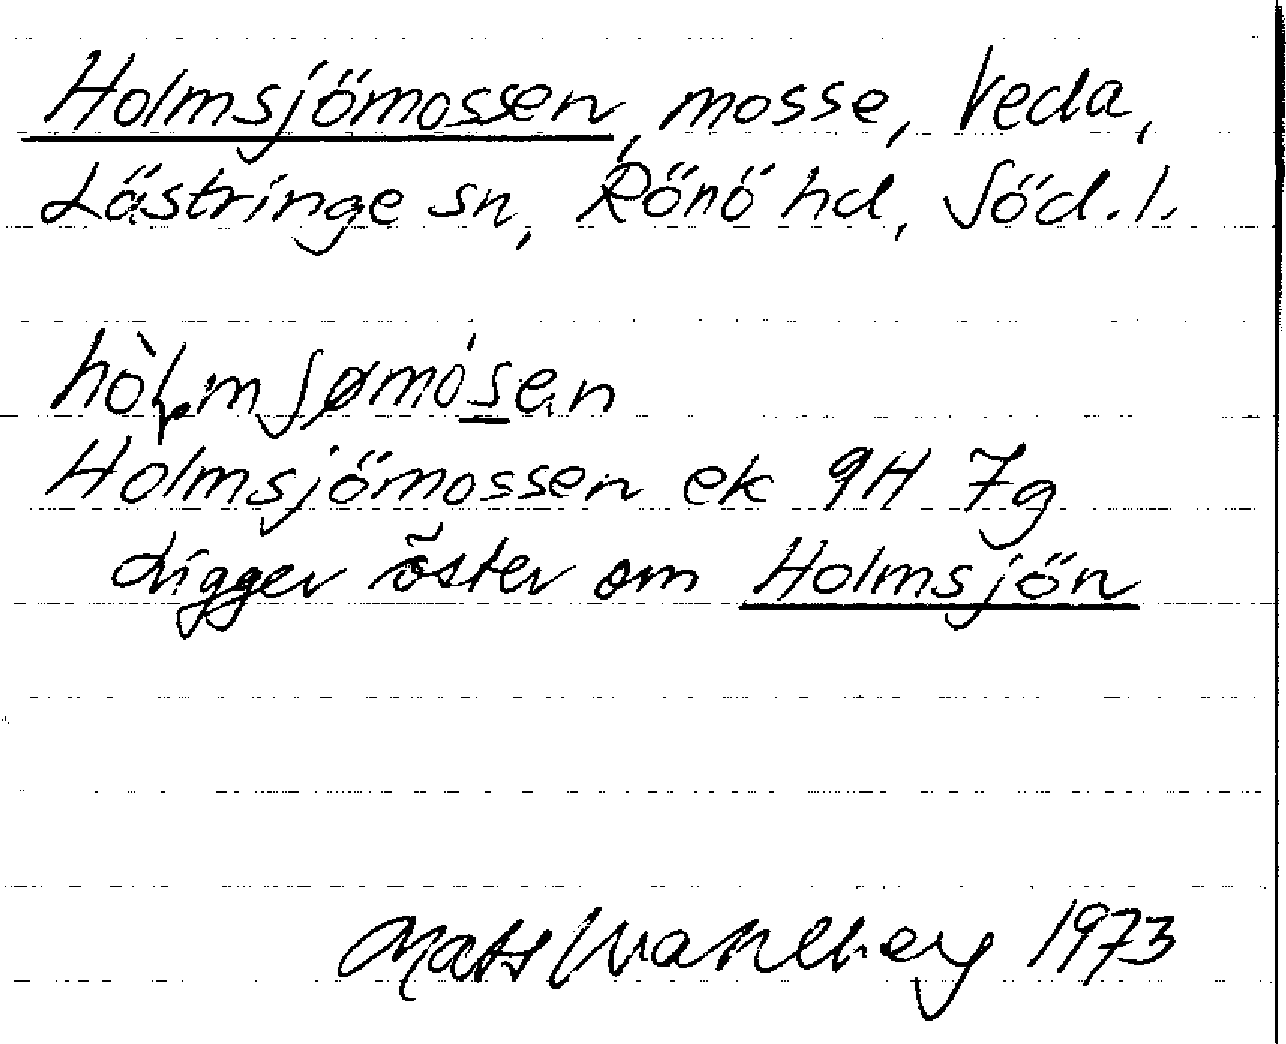 Holmsjömossen, mosse, Veda,
Lästringe sn, Rönö hd, Söd. l.
hòlmʃømósen
Holmsjömossen ek 9H 7g
Ligger öster om Holmsjön
Mats Wahlberg 1973